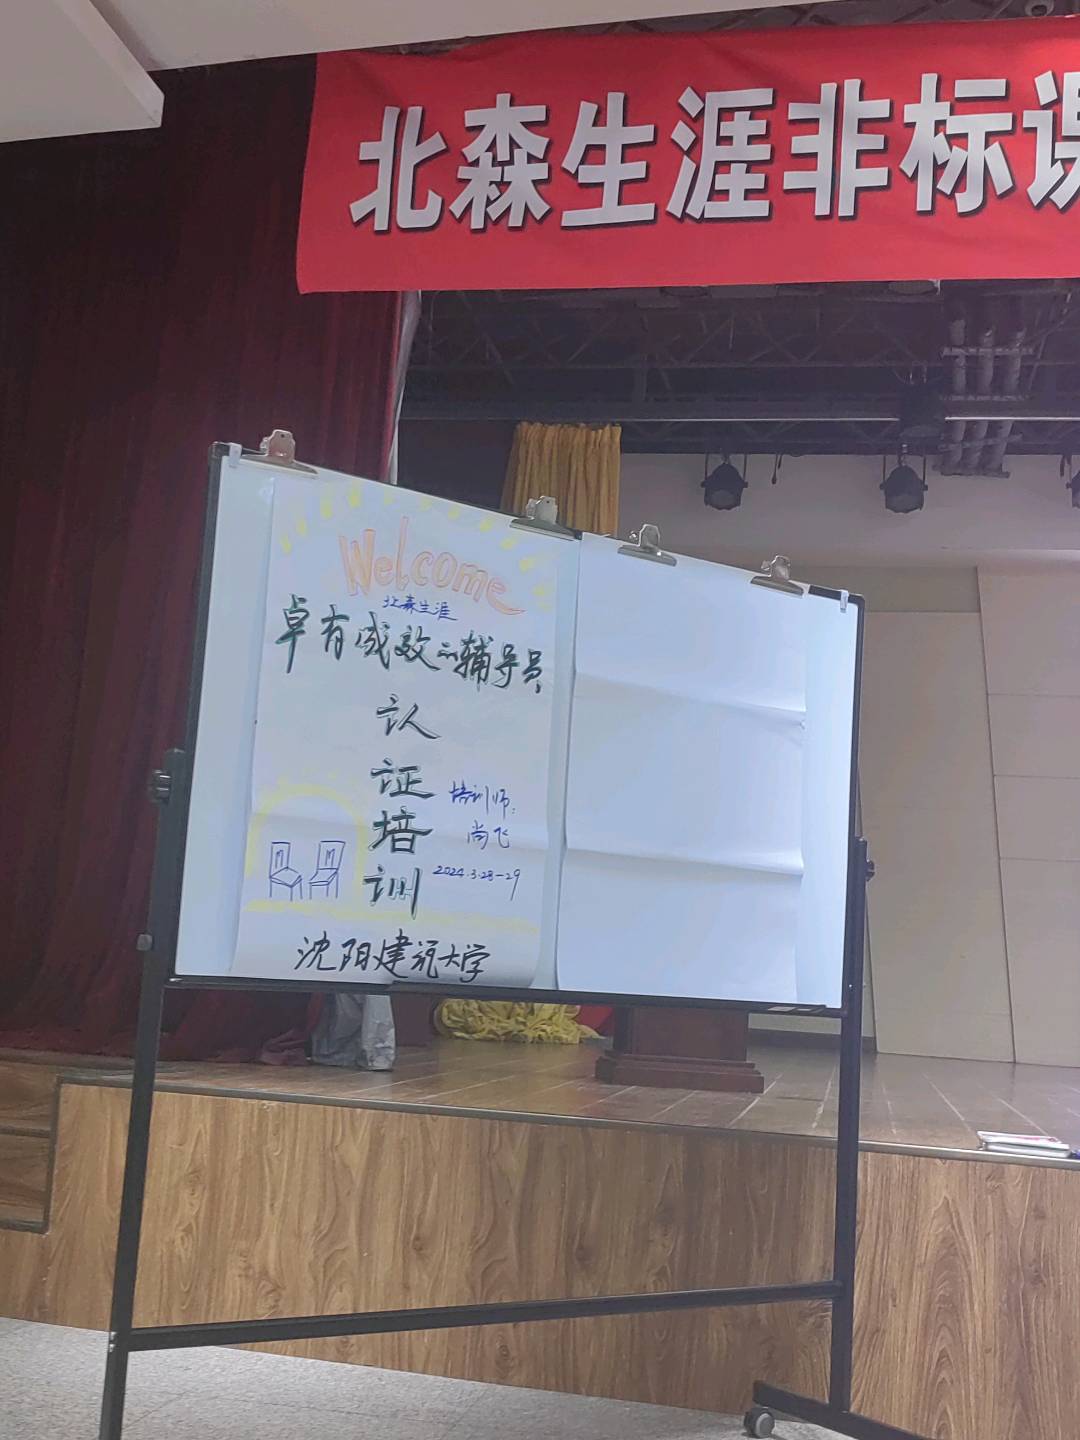 北森生涯非标课
Welcome
北森生涯
卓有成效的辅导员
认
证
培
训
培训师:
尚飞
2024.3.28-29
沈阳建筑大学